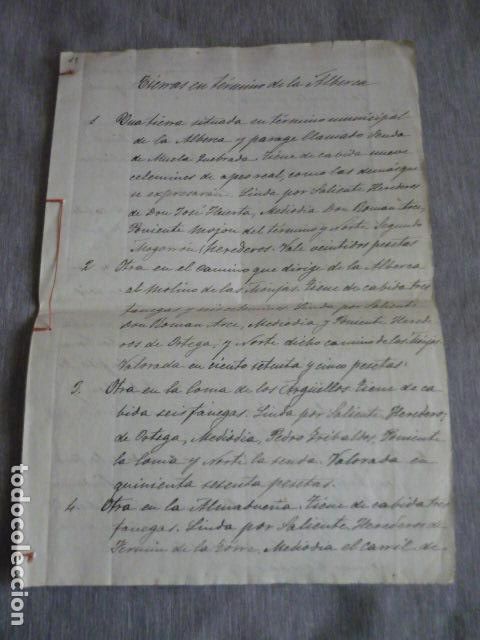 Tierras en término de la Alberca
1 Una tierra situada en término municipal
de la Alberca y parage llamado Senda
de Muela Quebrada. Tiene de cabida nueve
celemines de apeo real, como las demás que
se expresarán. Linda por Saliente Herederos
de Don José Huerta, Mediodia Don Román Arce,
Poniente Mojón del término y Norte Segundo
Mogorrón (herederos. Vale veintidos pesetas
2 Otra en el camino que dirige de la Alberca
al Molino de las Monjas. Tiene de cabida tres
fanegas y celemines. Linda por Saliente
Don Roman Arce, Mediodia y Poniente Herede
ros de Ortega, y Norte dicho camino de las Monjas
Valorada en ciento setenta y cinco pesetas.
3. Otra en la Loma de los Argüellos. Tiene de ca
bida seis fanegas. Linda por Saliente Herederos
de Ortega, Mediodia, Pedro Gribaldos, Poniente
la Loma y Norte la senda. Valorada en
quinienta sesenta pesetas.
4. Otra en la Tiene de cabida tres
fanegas. Linda por Saliente Herederos de
Fermin de la Torre, Mediodia el carril de
todocoleccion.net